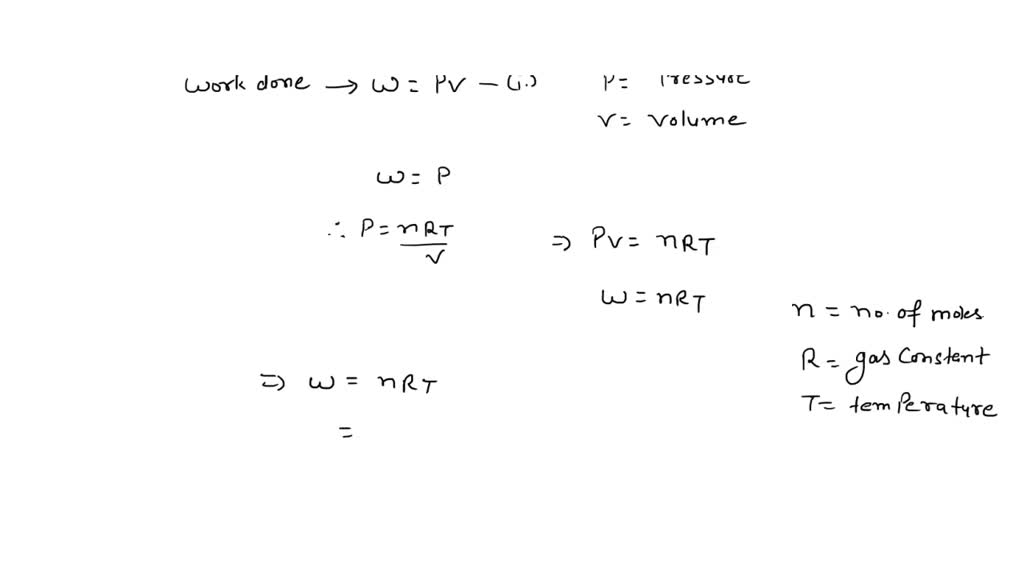 Work done → W = PV – (i.) P = Pressure
V = Volume
W = P
∴ P = nRT/V ⇒ PV = nRT
W = nRT
n = no. of moles
R = gas Constent
⇒ W = nRT
T = temPerature
=